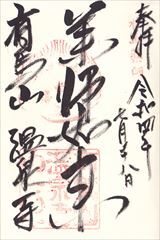 奉拝
令和四年
七月十八日
薬師如来
有馬山
温泉寺